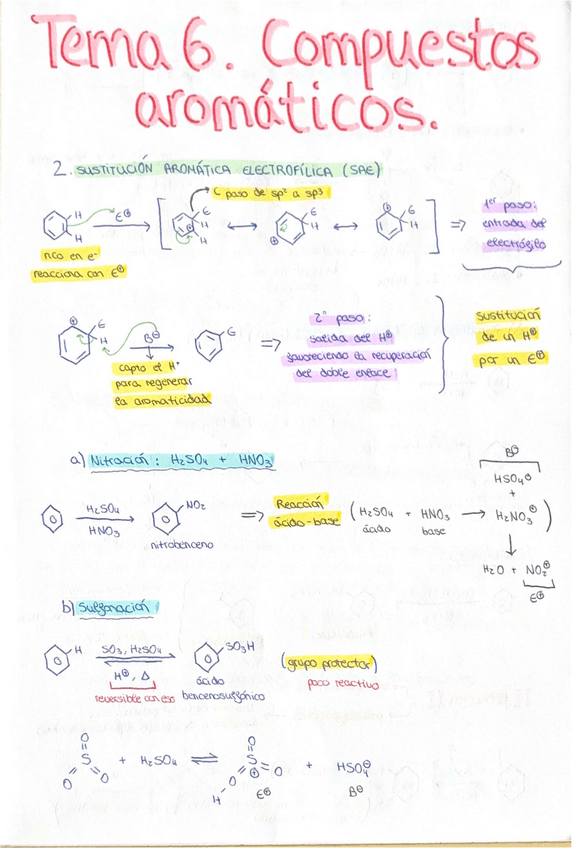 Tema 6. Compuestos
aromáticos.
2. SUSTITUCIÓN AROMÁTICA ELECTROFÍLICA (SAE)
C paso de sp² a sp³
H
H
E⊕
⊕
E
H
H
⊕
E
H
⊕
E
H
⇒
1er paso:
entrada del
electrófilo
rico en e-
reacciona con E⊕
⊕
E
H
B⊖
E
⇒
capta el H⁺
para regenerar
la aromaticidad
2° paso:
salida del H⊕
favoreciendo la recuperación
del doble enlace
Sustitución
de un H⊕
por un E⊕
a) Nitración: H2SO4 + HNO3
H2SO4
HNO3
NO2
nitrobenceno
⇒
Reacción
ácido-base
(H2SO4 + HNO3 → H2NO3⊕)
ácido
base
B⊖
HSO4⊖
+
↓
H2O + NO2⊕
E⊕
b) Sulfonación
H
SO3, H2SO4
H⊕, Δ
reversible con eso
SO3H
ácido
bencenosulfónico
(grupo protector)
poco reactivo
O
S
O
O
+ H2SO4 ⇌
O
S
⊕
O
O
H
E⊕
+
HSO4⊖
B⊖